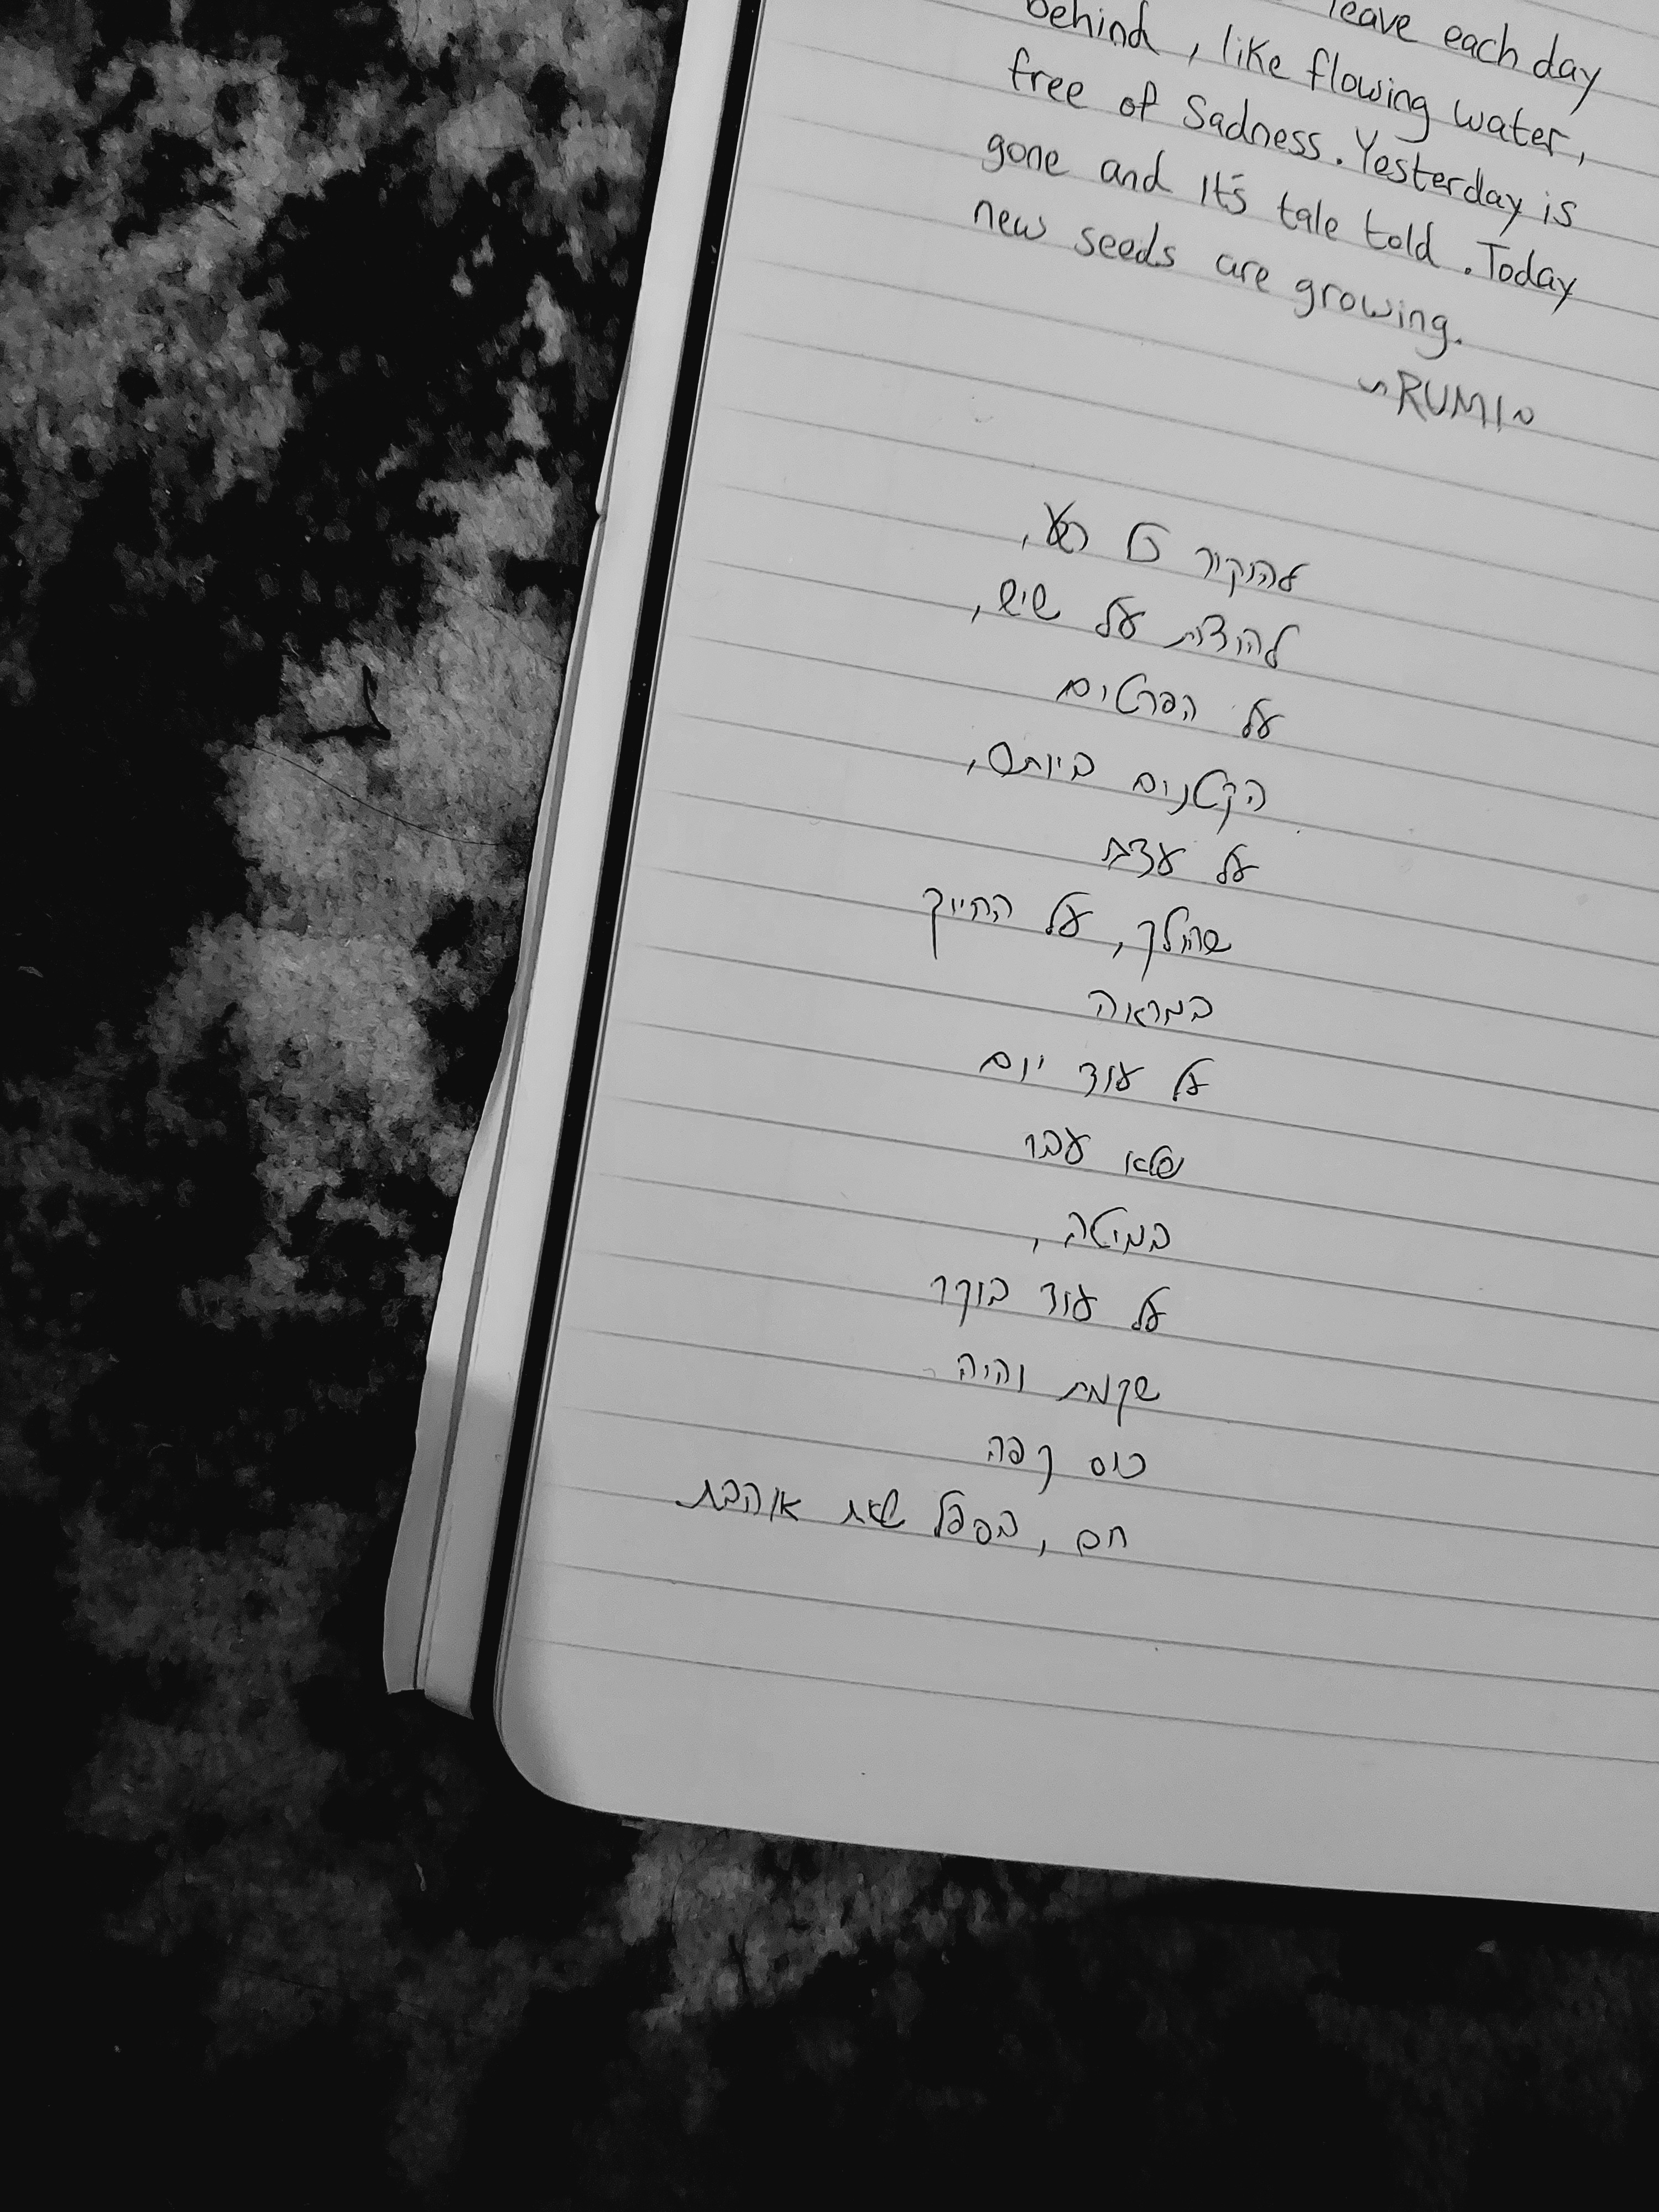 leave each day
behind, like flowing water,
free of Sadness. Yesterday is
gone and it's tale told. Today
new seeds are growing.
~RUMI~
להוקיר כל רגע,
להודות על שיש,
על הפרטים
הקטנים ביותם,
על עצב
שהולך, על החיוך
במראה
על עוד יום
שלא עבר
במיטה,
על עוד בוקר
שקמת והיה
כוס קפה
חם, בספל שאת אוהבת